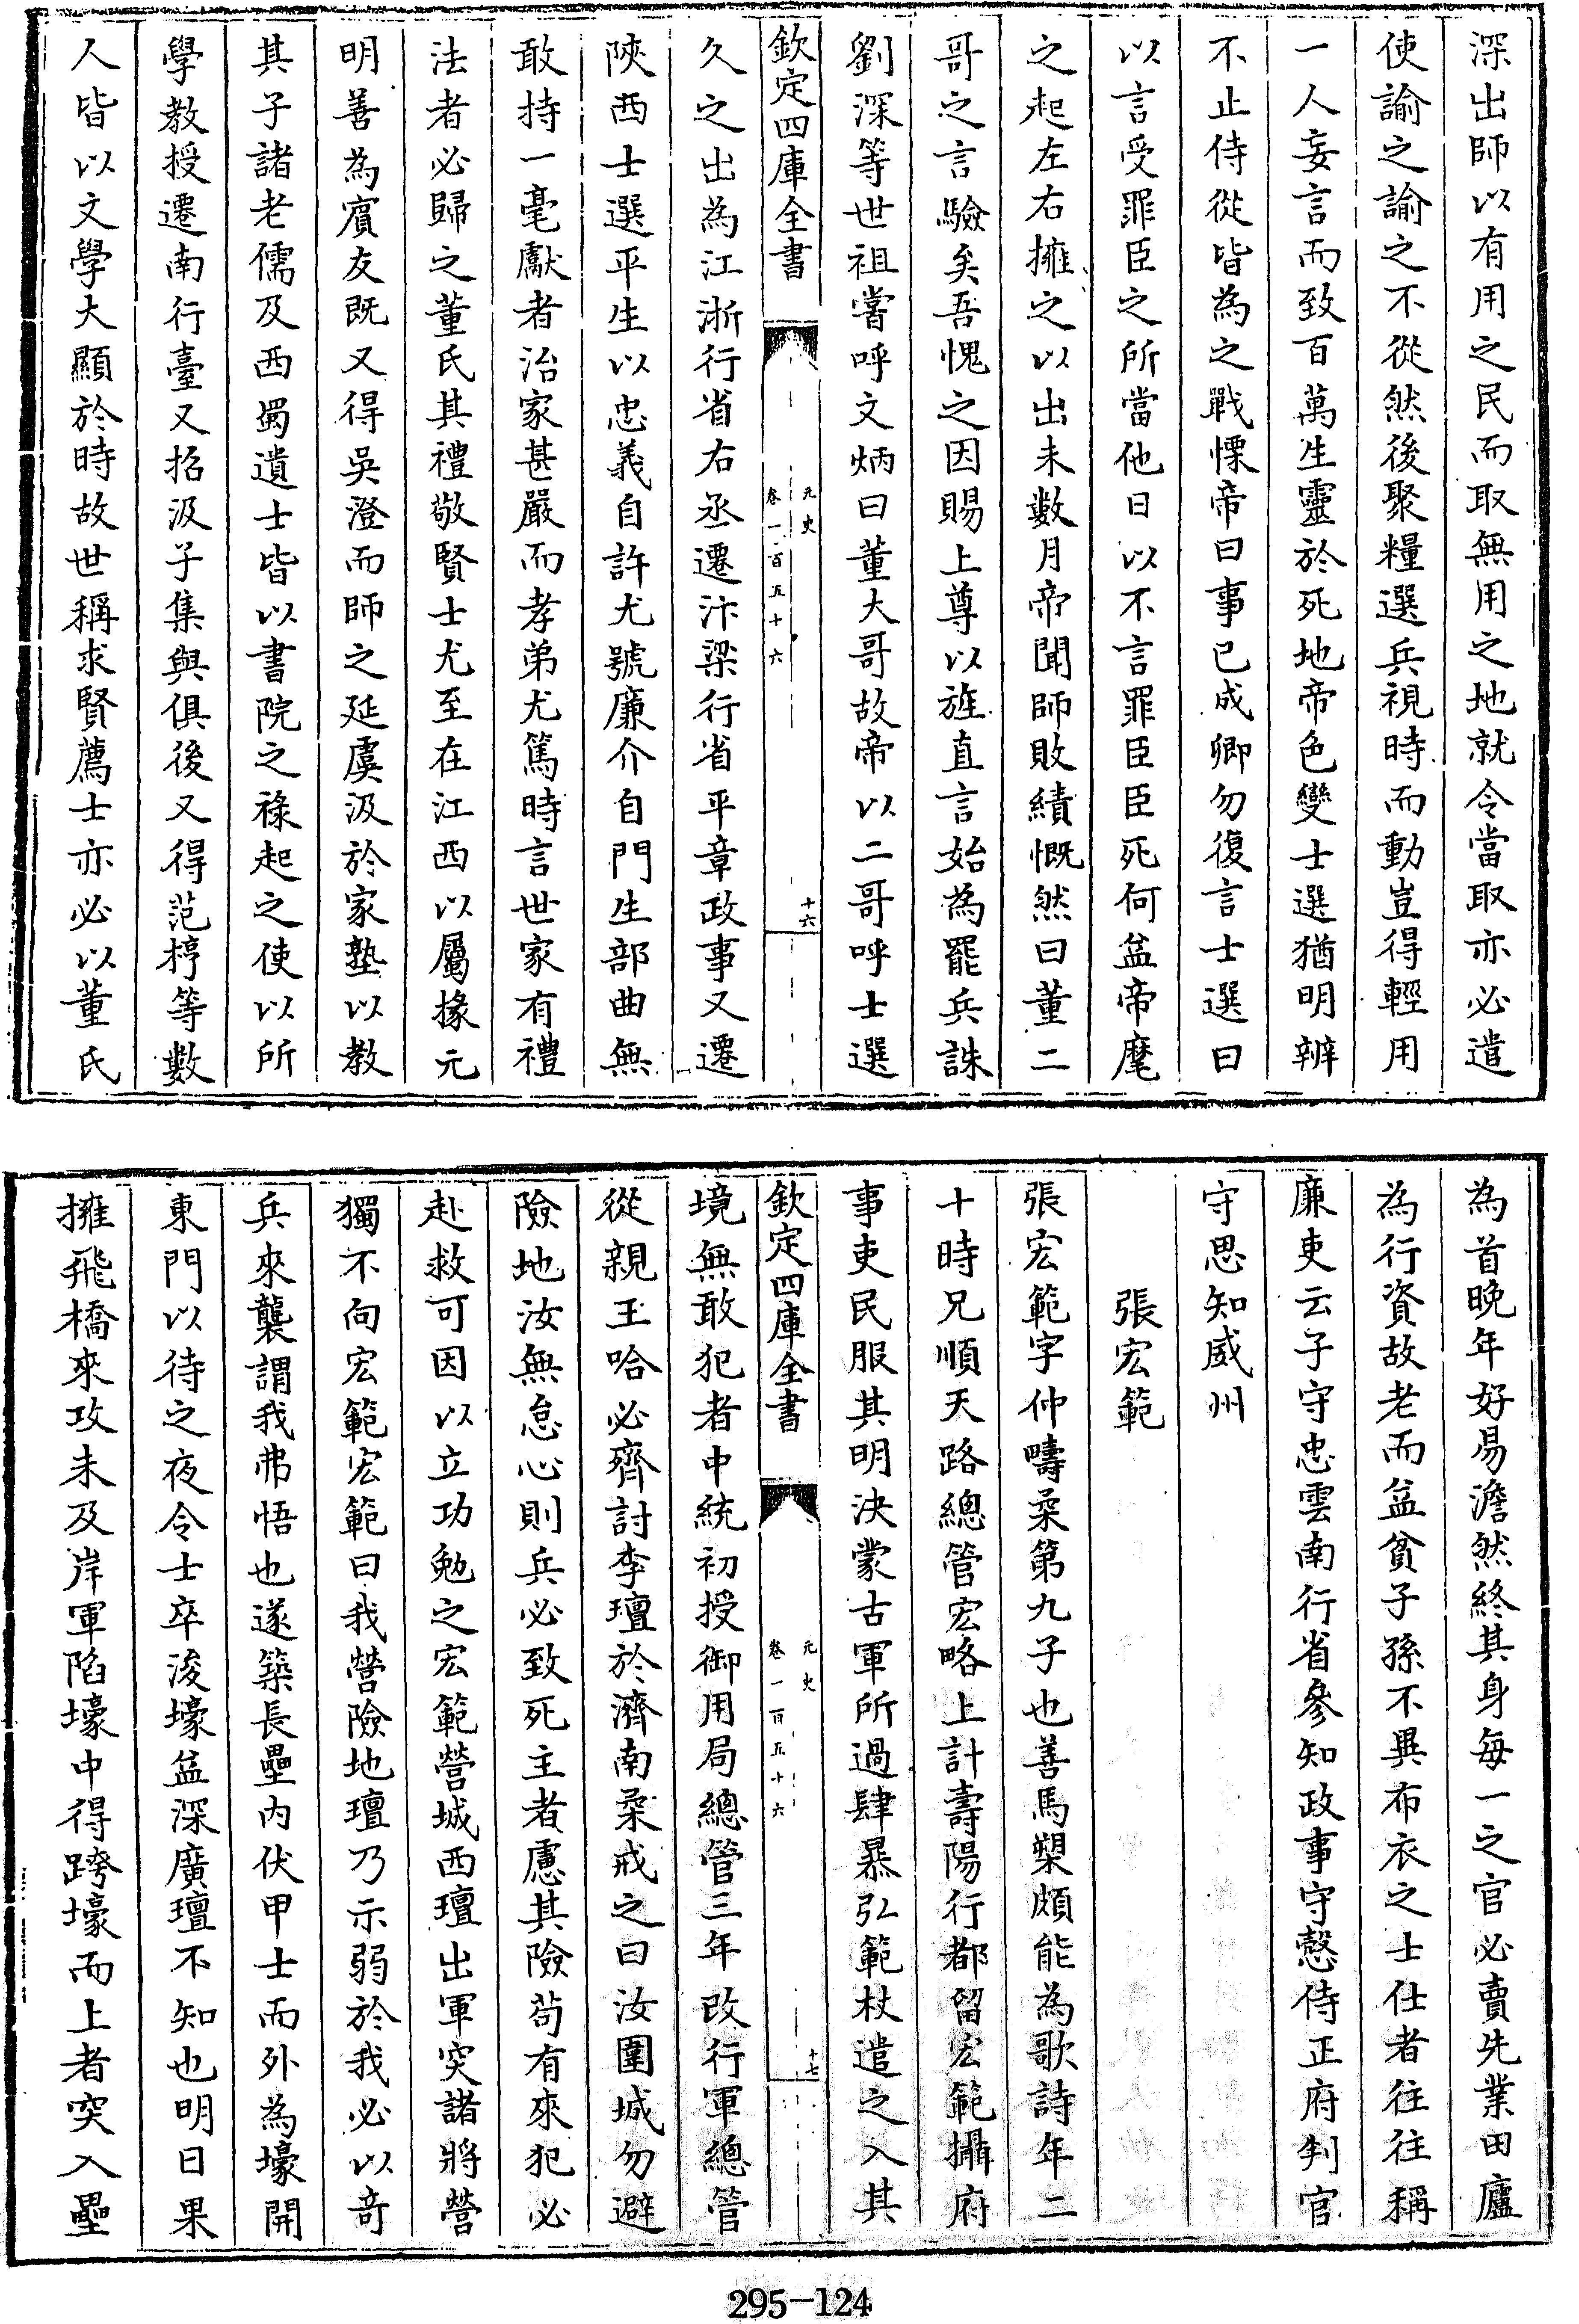 深出師以有用之民而取無用之地就令當取亦必遣
使諭之諭之不從然後聚糧選兵視時而動豈得輕用
一人妄言而致百萬生靈於死地帝色變士選猶明辨
不止侍從皆為之戰慄帝曰事已成卿勿復言士選曰
以言受罪臣之所當他日以不言罪臣臣死何益帝麾
之起左右擁之以出未數月帝聞師敗績慨然曰董二
哥之言驗矣吾愧之因賜上尊以旌直言始為罷兵誅
劉深等世祖嘗呼文炳曰董大哥故帝以二哥呼士選
欽定四庫全書
元史
卷一百五十六
十六
久之出為江浙行省右丞遷汴梁行省平章政事又遷
陜西士選平生以忠義自許尤號廉介自門生部曲無
敢持一毫獻者治家甚嚴而孝弟尤篤時言世家有禮
法者必歸之董氏其禮敬賢士尤至在江西以屬掾元
明善為賓友既又得吳澄而師之延虞汲於家塾以教
其子諸老儒及西蜀遺士皆以書院之祿起之使以所
學教授遷南行臺又招汲子集與俱後又得范梈等數
人皆以文學大顯於時故世稱求賢薦士亦必以董氏
為首晚年好易澹然終其身每一之官必賣先業田廬
為行資故老而益貧子孫不異布衣之士仕者往往稱
廉吏云子守忠雲南行省參知政事守慤侍正府判官
守思知威州
張宏範
張宏範字仲疇柔第九子也善馬槊頗能為歌詩年二
十時兄順天路總管宏略上計壽陽行都留宏範攝府
事吏民服其明決蒙古軍所過肆暴弘範杖遣之入其
欽定四庫全書
元史
卷一百五十六
十七
境無敢犯者中統初授御用局總管三年改行軍總管
從親王哈必齊討李璮於濟南柔戒之曰汝圍城勿避
險地汝無怠心則兵必致死主者慮其險苟有來犯必
赴救可因以立功勉之宏範營城西璮出軍突諸將營
獨不向宏範宏範曰我營險地璮乃示弱於我必以奇
兵來襲謂我弗悟也遂築長壘內伏甲士而外為壕開
東門以待之夜令士卒浚壕益深廣璮不知也明日果
擁飛橋來攻未及岸軍陷壕中得跨壕而上者突入壘
295-124